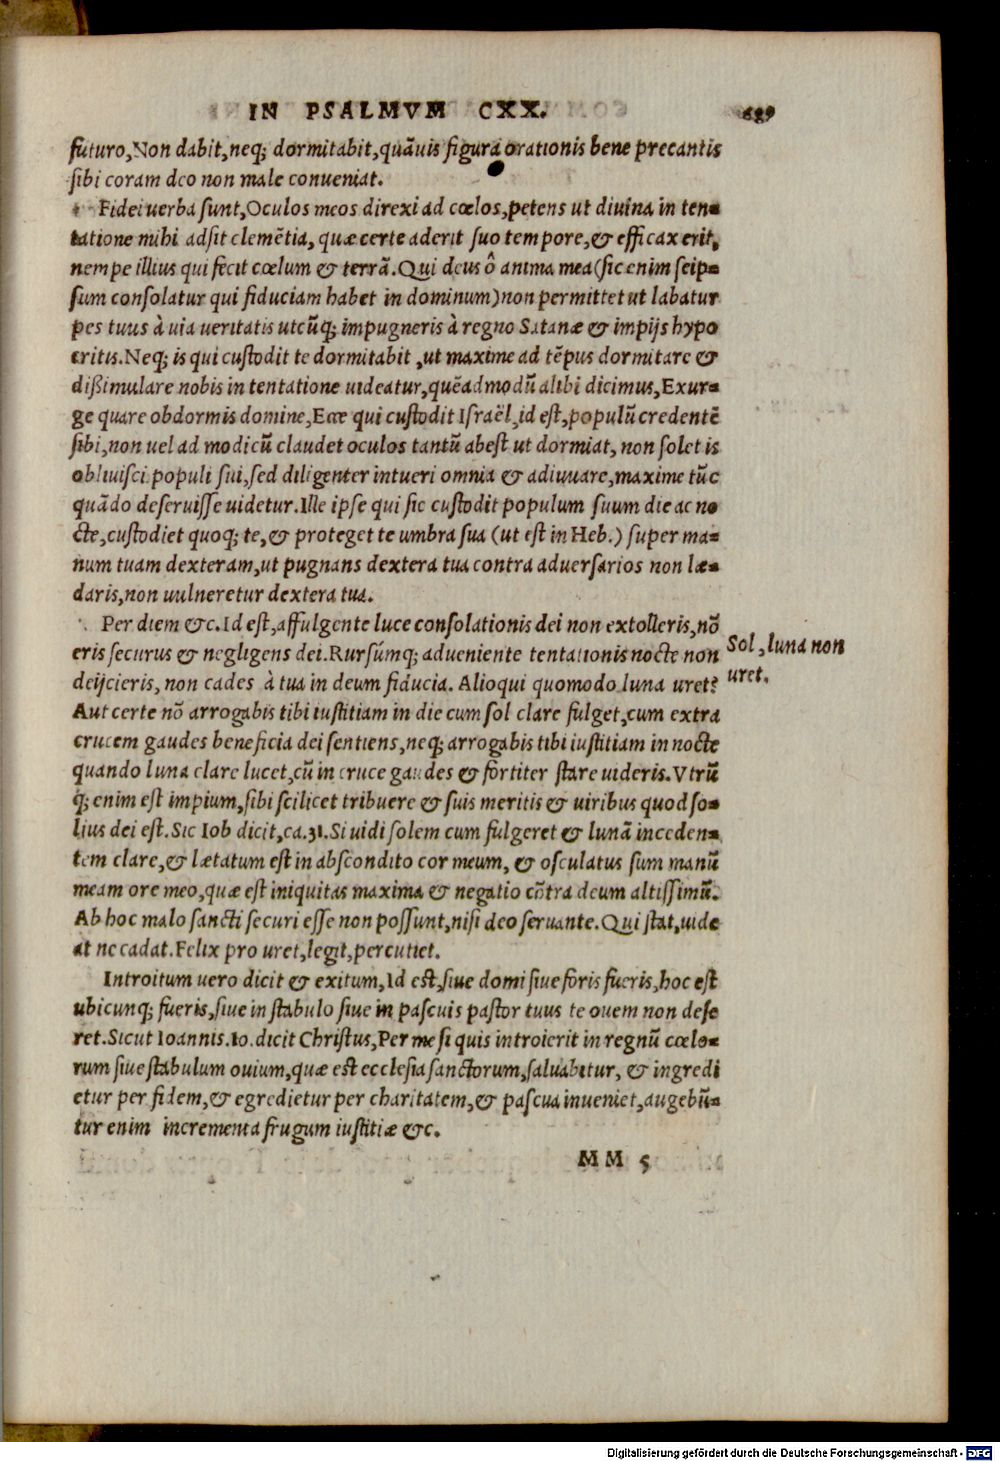 IN PSALMVM CXX. 689
futuro, Non dabit, neq; dormitabit, quãuis figura orationis bene precantis
sibi coram deo non male conueniat.
Fidei uerba sunt, Oculos meos direxi ad cœlos, petens ut diuina in ten-
tatione mihi adsit clemẽtia, quæ certe aderit suo tempore, & efficax erit,
nempe illius qui fecit cœlum & terrã. Qui deus ô anima mea (sic enim seip-
sum consolatur qui fiduciam habet in dominum) non permittet ut labatur
pes tuus à uia ueritatis utcũq; impugneris à regno Satanæ & impijs hypo
critis. Neq; is qui custodit te dormitabit, ut maxime ad tẽpus dormitare &
dißimulare nobis in tentatione uideatur, quẽadmodũ alibi dicimus, Exur-
ge quare obdormis domine, Ecce qui custodit Israël, id est, populũ credentẽ
sibi, non uel ad modicũ claudet oculos tantũ abest ut dormiat, non solet is
obliuisci populi sui, sed diligenter intueri omnia & adiuuare, maxime tũc
quãdo deseruisse uidetur. Ille ipse qui sic custodit populum suum die ac no
cte, custodiet quoq; te, & proteget te umbra sua (ut est in Heb.) super ma-
num tuam dexteram, ut pugnans dextera tua contra aduersarios non læ-
daris, non uulneretur dextera tua.
Per diem &c. Id est, affulgente luce consolationis dei non extolleris, nõ
eris securus & negligens dei. Rursúmq; adueniente tentationis nocte non
deijcieris, non cades à tua in deum fiducia. Alioqui quomodo luna uret?
Sol, luna non
uret.
Aut certe nõ arrogabis tibi iustitiam in die cum sol clare fulget, cum extra
crucem gaudes beneficia dei sentiens, neq; arrogabis tibi iustitiam in nocte
quando luna clare lucet, cũ in cruce gaudes & fortiter stare uideris. Vtrũ
q; enim est impium, sibi scilicet tribuere & suis meritis & uiribus quod so-
lius dei est. Sic Iob dicit, ca. 31. Si uidi solem cum fulgeret & lunã inceden-
tem clare, & lætatum est in abscondito cor meum, & osculatus sum manũ
meam ore meo, quæ est iniquitas maxima & negatio cõtra deum altissimũ.
Ab hoc malo sancti securi esse non possunt, nisi deo seruante. Qui stat, uide
at ne cadat. Felix pro uret, legit, percutiet.
Introitum uero dicit & exitum, Id est, siue domi siue foris fueris, hoc est
ubicunq; fueris, siue in stabulo siue in pascuis pastor tuus te ouem non dese
ret. Sicut Ioannis. 10. dicit Christus, Per me si quis introierit in regnũ cœlo-
rum siue stabulum ouium, quæ est ecclesia sanctorum, saluabitur, & ingredi
etur per fidem, & egredietur per charitatem, & pascua inueniet, augebũ-
tur enim incrementa frugum iustitiæ &c.
MM 5
Digitalisierung gefördert durch die Deutsche Forschungsgemeinschaft - DFG